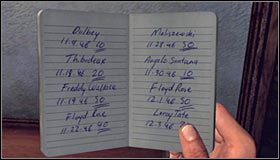 Dolbey
11.9.46 10
Thibideax
11.18.46 20
Freddy Wallace
11.19.46 50
Floyd Rose
11.22.46 40
Maliszewski
11.28.46 50
Angelo Santana
11.30.46 10
Floyd Rose
12.1.46 50
Leroy Tate
12.3.46